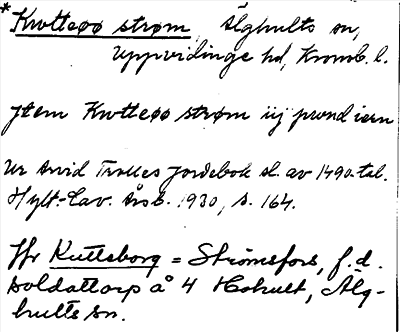 *Kutteøø strøm, Älghults sn,
Uppvidinge hd, Kronob. l.
Jtem Kutteøø strøm iij pund iern
Ur Arvid Trolles jordebok sl. av 1490-tal.
Hylt.-Cav. Årsb. 1930, s. 164.
Jfr Kutteborg = Strömsfors, f.d.
soldattorp å 4 Hohult, Älg-
hults sn.